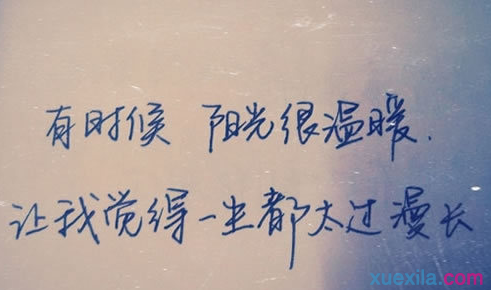 有时候 阳光很温暖.
让我觉得一生都太过漫长
xuexila.com